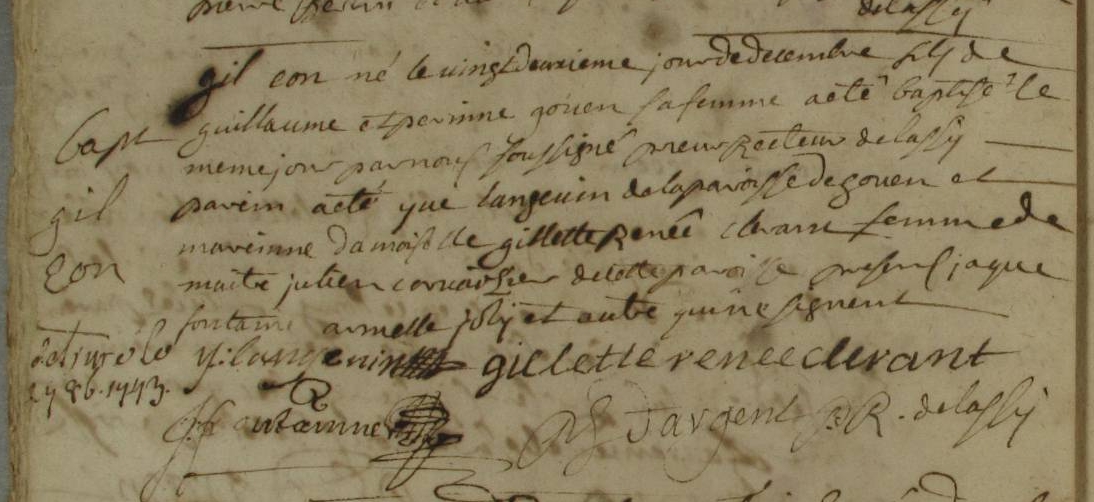 delassÿ
gil eon né le vingtdeuxieme jour de decembre fils de
Bapt guillaume et perinne gouen sa femme a eté baptisé le
meme jour par nous soussigné prieur Recteur delassÿ
gil parein a eté yve langevin de la paroisse de gouen et
mareinne damoiselle gillette Renée clerant femme de
eon maitre julien corvaisier de cette paroisse presens jaque
fontaine armelle jolÿ et autre qui ne signent
delivré le Y: langevin gillette renee clerant
1773.
J fontainne Dargent P. R. de lassÿ